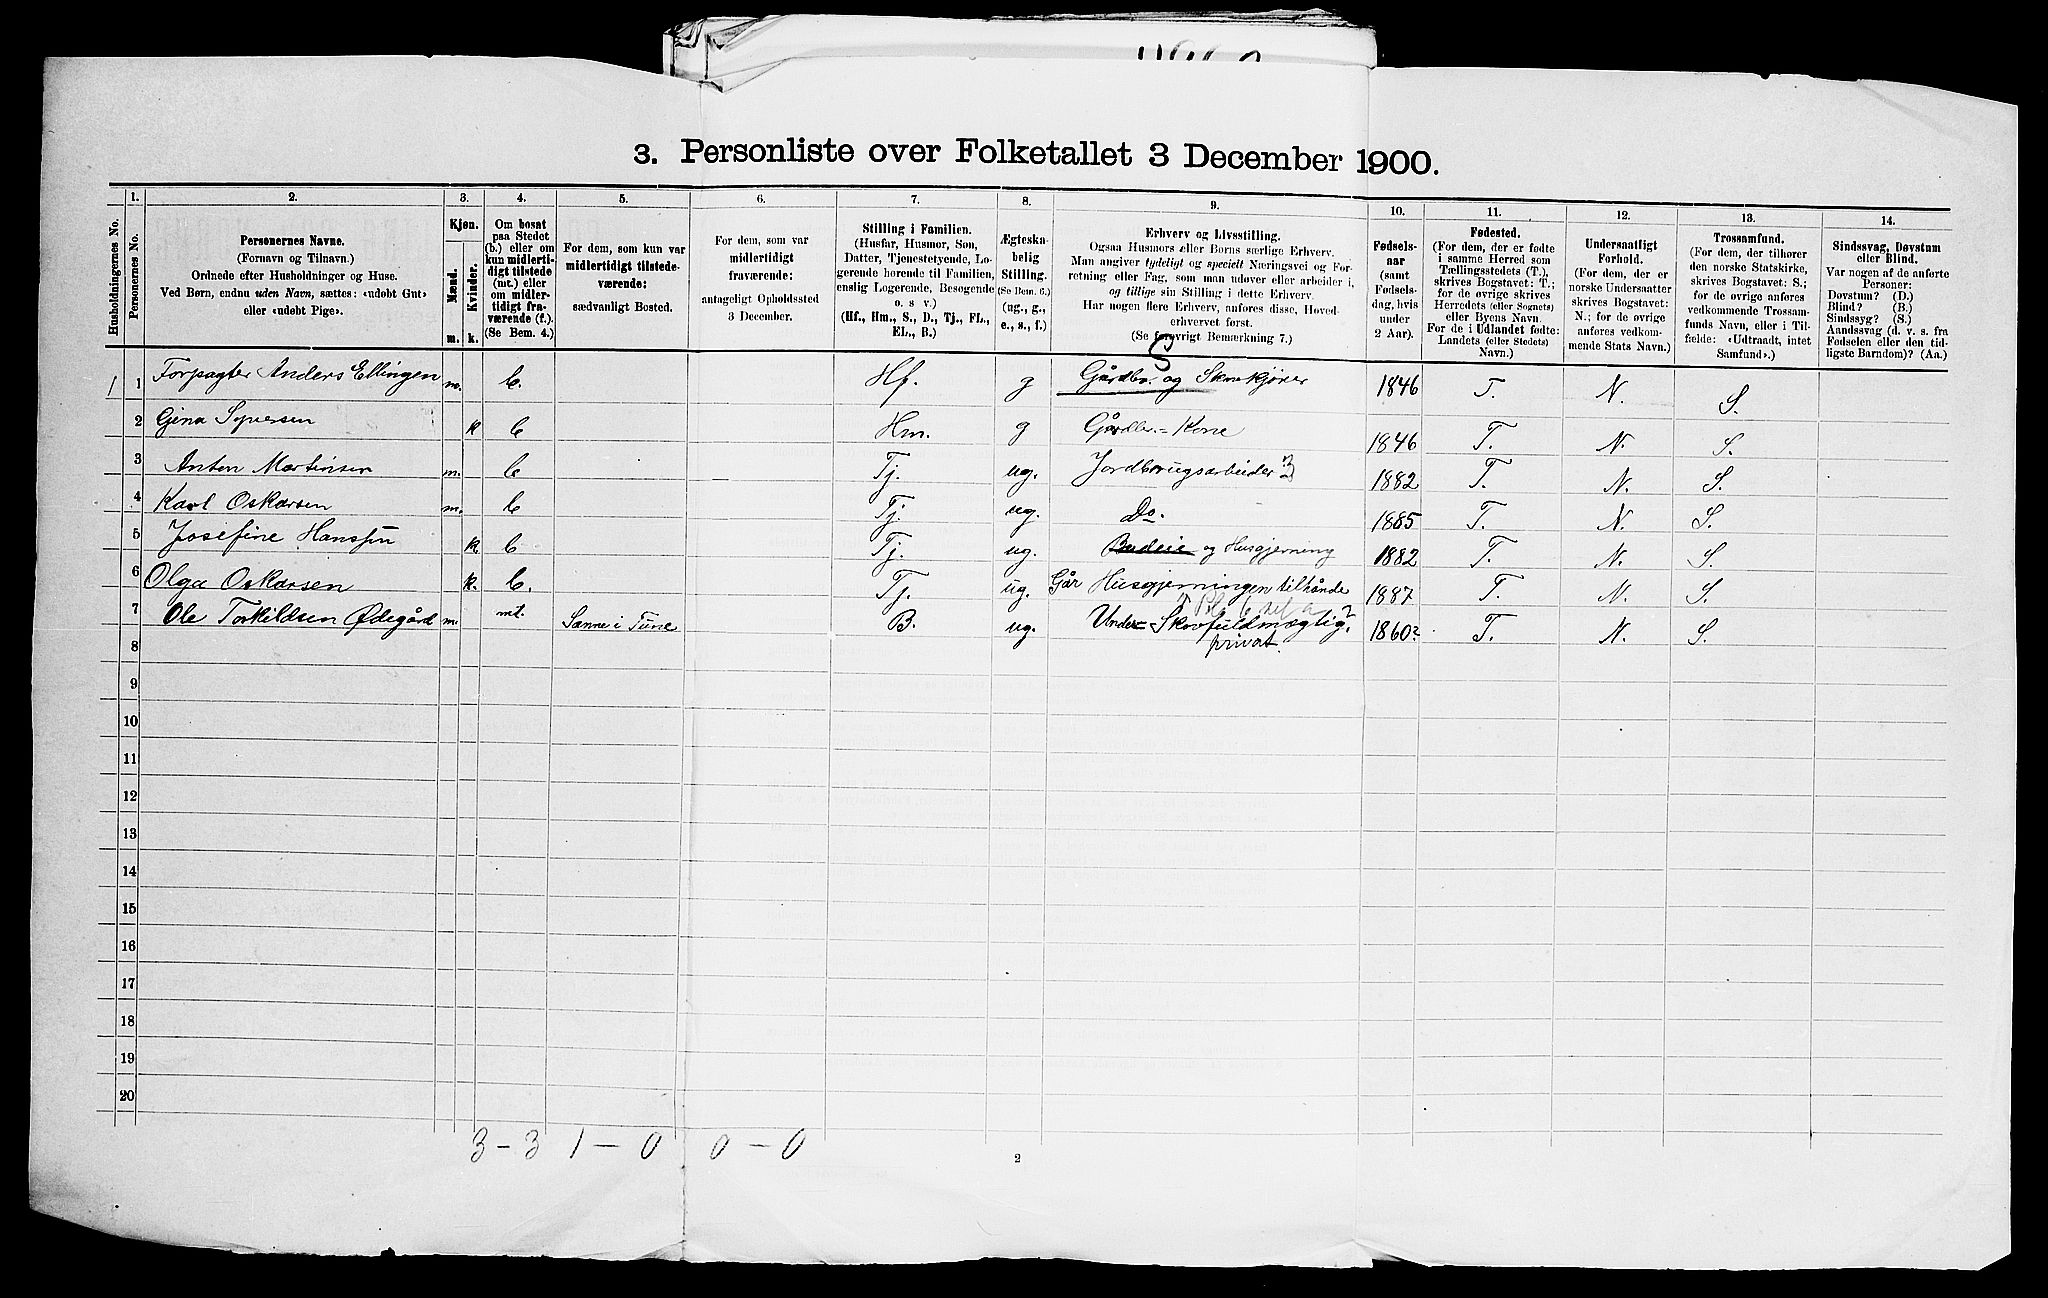 3. Personliste over Folketallet 3 December 1900.
1. 2. 3. 4. 5. 6. 7. 8. 9. 10. 11. 12. 13. 14.
Husholdningernes No.
Personernes No.
Personernes Navne.
(Fornavn og Tilnavn.)
Ordnede efter Husholdninger og Huse.
Ved Børn, endnu uden Navn, sættes: «udøbt Gut»
eller «udøbt Pige».
Kjøn.
Mænd.
Kvinder.
m. k.
Om bosat
paa Stedet
(b.) eller om
kun midlerti-
digt tilstede
(mt.) eller
om midler-
tidigt fra-
værende (f.).
(Se Bem. 4.)
For dem, som kun var
midlertidigt tilstede-
værende:
sædvanligt Bosted.
For dem, som var
midlertidigt
fraværende:
antageligt Opholdssted
3 December.
Stilling i Familien.
(Husfar, Husmor, Søn,
Datter, Tjenestetyende, Lo-
gerende hørende til Familien,
enslig Logerende, Besøgende
o. s v.)
(Hf., Hm., S., D., Tj., FL.,
EL., B.)
Ægteska-
belig
Stilling.
(Se Bem. 6.)
(ug., g.,
e., s., f.)
Erhverv og Livsstilling.
Ogsaa Husmors eller Børns særlige Erhverv.
Man angiver tydeligt og specielt Næringsvei og For-
retning eller Fag, som man udøver eller arbeider i,
og tillige sin Stilling i dette Erhverv.
Har nogen flere Erhverv, anføres disse, Hoved-
erhvervet først.
(Se forøvrigt Bemærkning 7.)
Fødsels-
aar
(samt
Fødsels-
dag, hvis
under
2 Aar).
Fødested.
(For dem, der er fødte
i samme Herred som
Tællingsstedets (T.),
skrives Bogstavet: T.;
for de øvrige skrives
Herredets (eller Sognets)
eller Byens Navn.
For de i Udlandet fødte:
Landets (eller Stedets)
Navn.)
Undersaatligt
Forhold.
(For dem, der er
norske Undersaatter
skrives Bogstavet:
N.; for de øvrige
anføres vedkom-
mende Stats Navn.)
Trossamfund.
(For dem, der tilhører
den norske Statskirke,
skrives Bogstavet: S.;
for de øvrige anføres
vedkommende Trossam-
funds Navn, eller i Til-
fælde: «Udtraadt, intet
Samfund».)
Sindssvag, Døvstum
eller Blind.
Var nogen af de anførte
Personer:
Døvstum? (D.)
Blind? (B.)
Sindssyg? (S.)
Aandssvag (d. v. s. fra
Fødselen eller den tid-
ligste Barndom)? (Aa.)
S
1 1 Forpagter Anders Ellingen m. b. Hf. g Gårdbr. og Skovkjører 1846 T. N. S.
2 Gina Syversen k b Hm. g Gårdbr.= Kone 1846 T. N. S.
3 Anton Martinsen m. b Tj. ug. Jordbrugsarbeider 1882 T. N. S.
4 Karl Oskarsen m. b Tj. ug. Do. 1885 T. N. S.
5 Josefine Hanssen k b Tj. ug. Budeie og Husgjerning 1882 T. N. S.
6 Olga Oskarsen k. b. Tj. ug. Går Husgjerningen tilhånde 1887 T. N. S.
7 Ole Torkildsen Ødegård m. mt. Sanne i Tune B. ug. Under= Skovfuldmægtig? 1860? T. N. S.
privat.
8
9
10
11
12
13
14
15
16
17
18
19
20
3 – 3 1 – 0 0 – 0
2